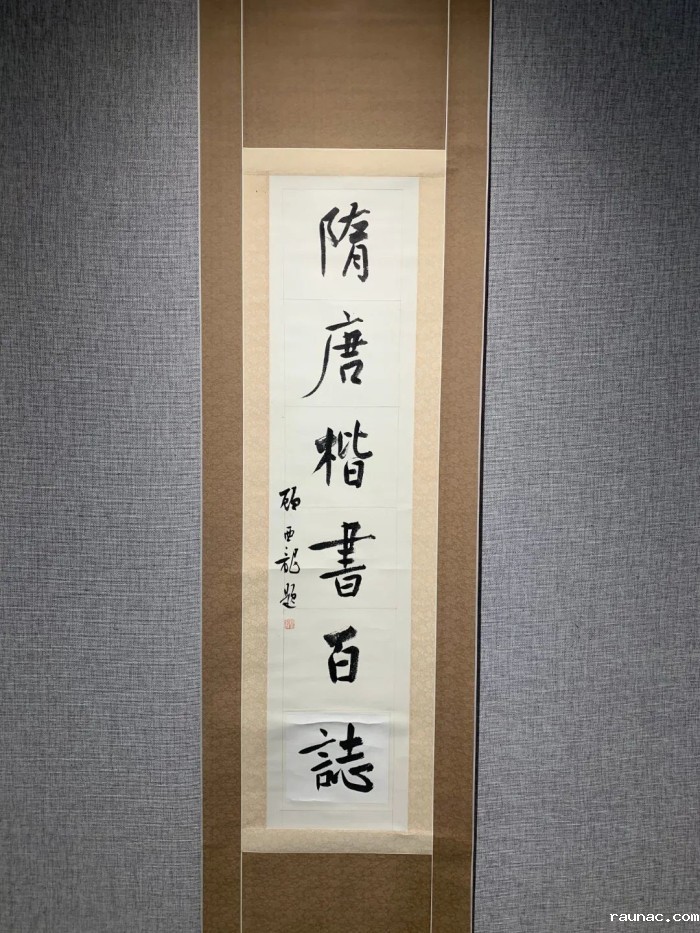 隋唐楷書百誌
顾西龍题
raunac.com